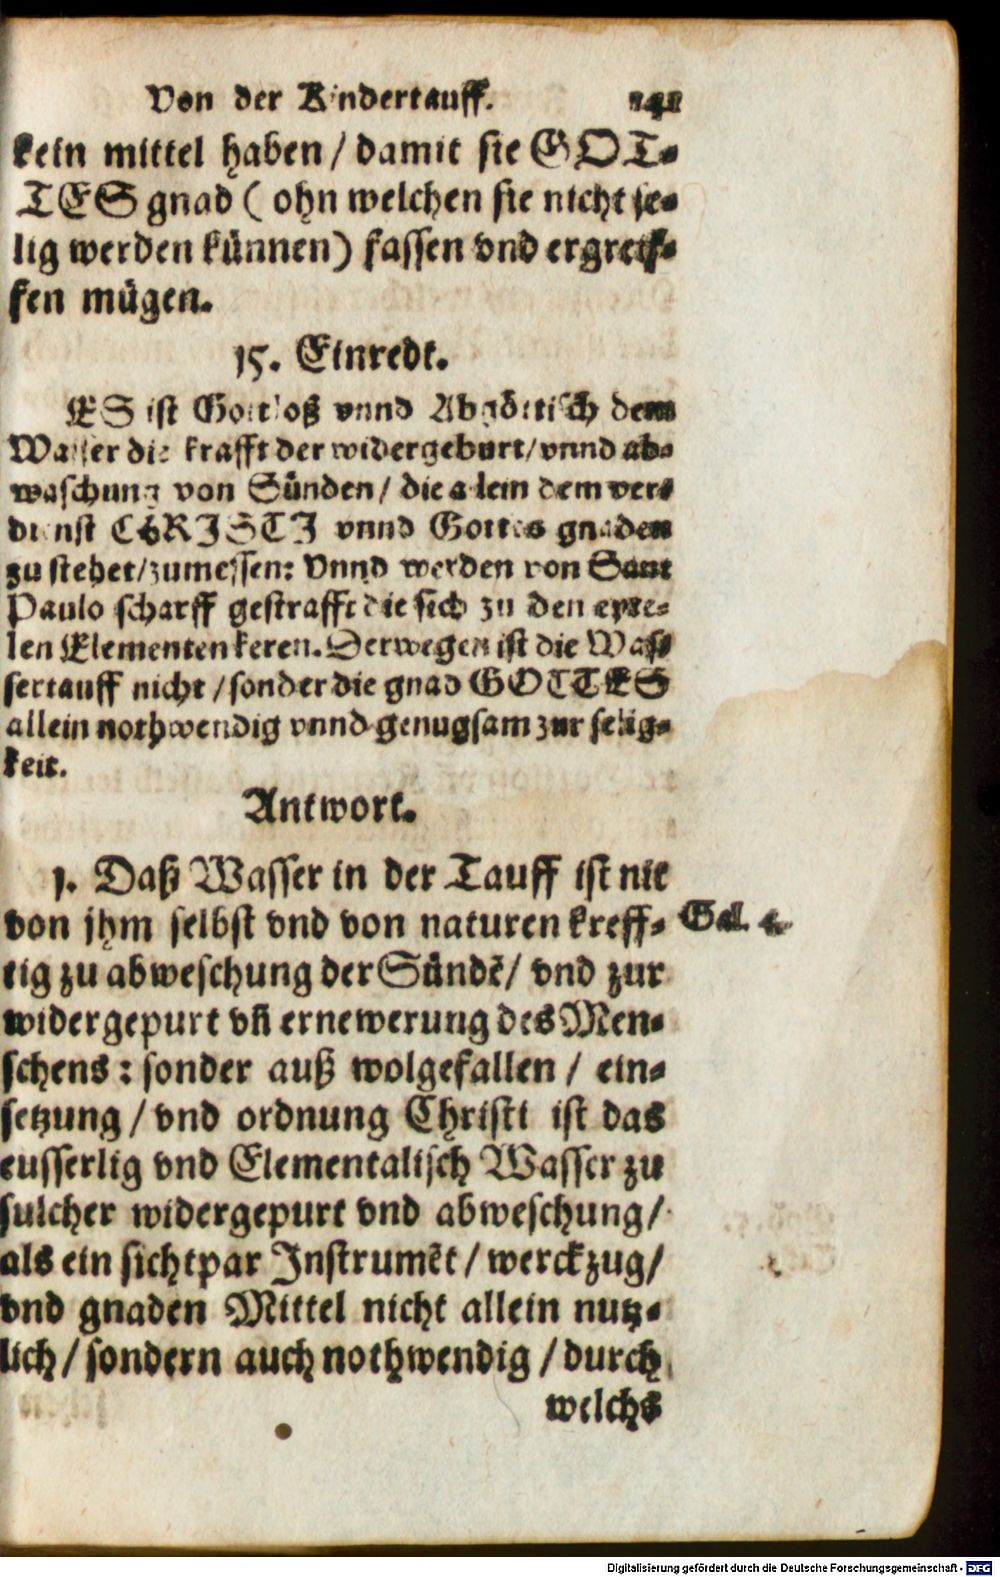 Von der Kindertauff. 141
kein mittel haben / damit sie GOT-
TES gnad ( ohn welchen sie nicht se-
lig werden künnen) fassen vnd ergreif-
fen mügen.
15. Einredt.
ES ist Gottloß vnnd Abgöttisch dem
Wasser die krafft der widergeburt/vnnd ab-
waschung von Sünden/ die allein dem ver-
dienst CHRISTI vnnd Gottes gnaden
zu stehet/zumessen: Vnnd werden von Sant
Paulo scharff gestrafft die sich zu den eyte-
len Elementen keren. Derwegen ist die Was-
sertauff nicht /sonder die gnad GOTTES
allein nothwendig vnnd genugsam zur selig-
keit.
Antwort.
1. Daß Wasser in der Tauff ist nit
von jhm selbst vnd von naturen kreff- Gal. 4.
tig zu abweschung der Sündẽ/ vnd zur
widergepurt vñ ernewerung des Men-
schens : sonder auß wolgefallen / ein-
setzung / vnd ordnung Christi ist das
eusserlig vnd Elementalisch Wasser zu
sulcher widergepurt vnd abweschung/
als ein sichtpar Instrumẽt / werckzug/
vnd gnaden Mittel nicht allein nutz-
lich / sondern auch nothwendig / durch
welchs
Digitalisierung gefördert durch die Deutsche Forschungsgemeinschaft - DFG